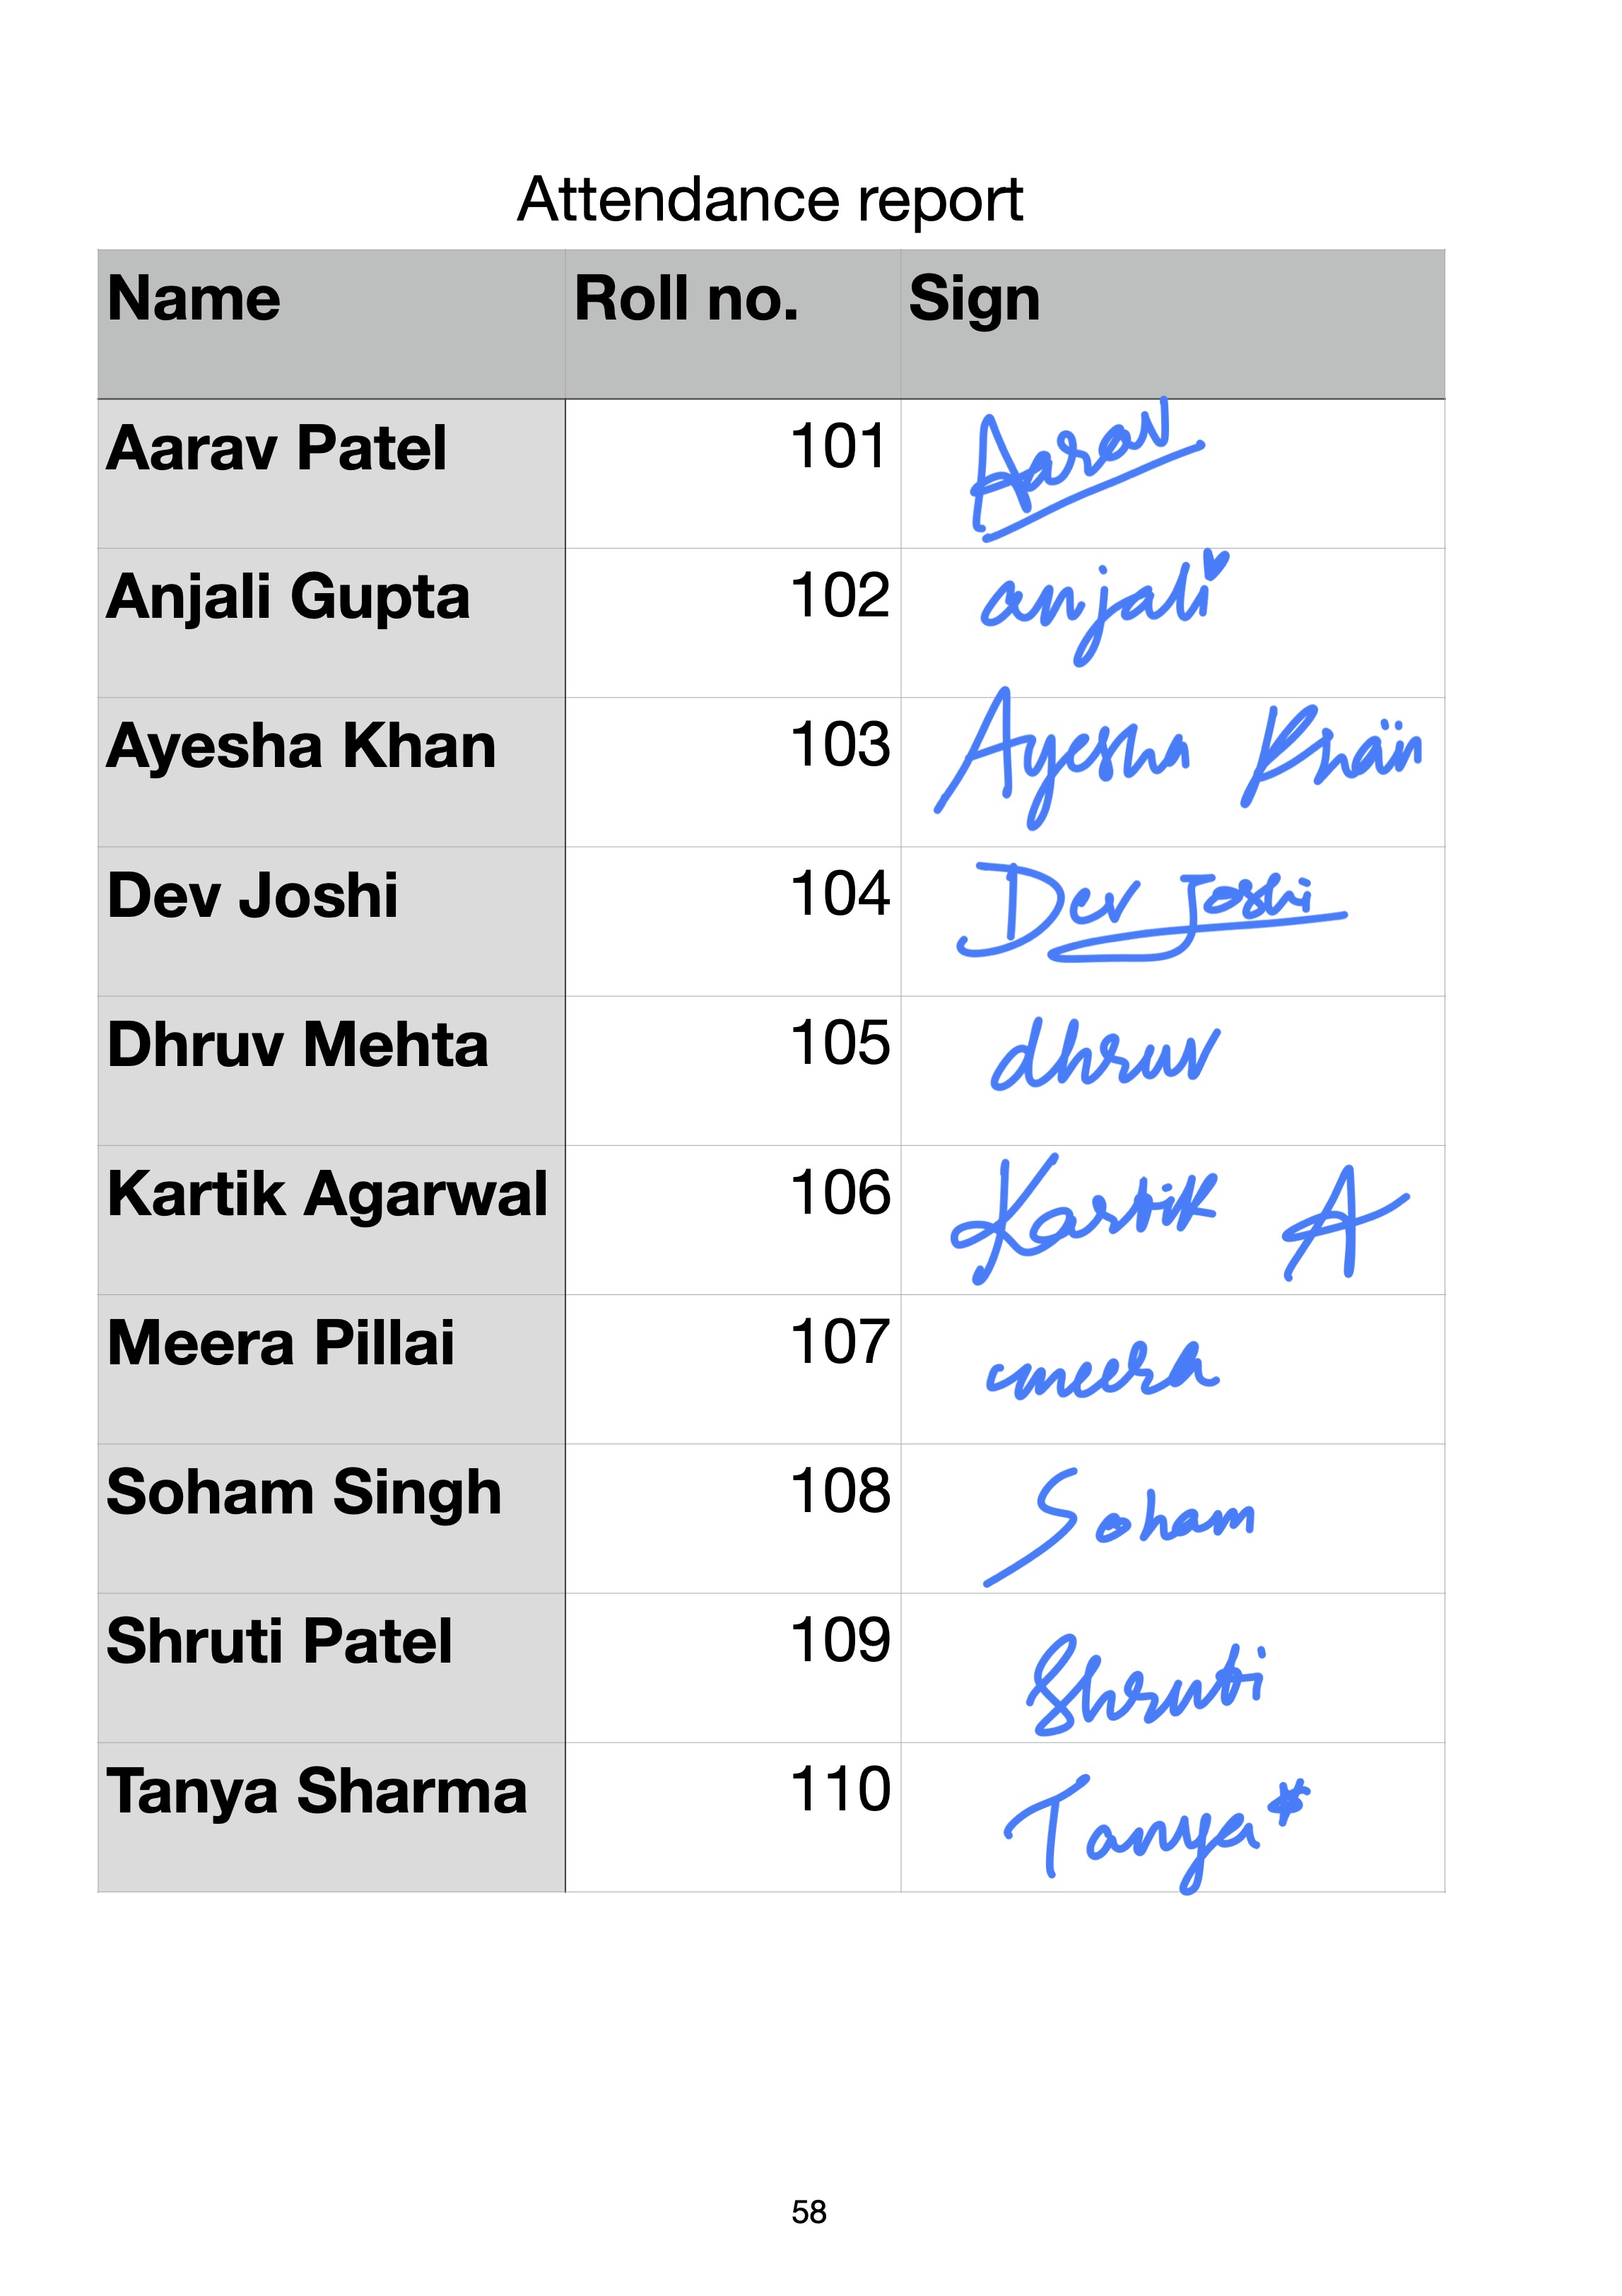 Attendance report
Name Roll no. Sign
Aarav Patel 101 Aarav
Anjali Gupta 102 anjali
Ayesha Khan 103 Ayesha Khan
Dev Joshi 104 Dev Joshi
Dhruv Mehta 105 dhruv
Kartik Agarwal 106 Kartik A
Meera Pillai 107 meera
Soham Singh 108 Soham
Shruti Patel 109 Shruti
Tanya Sharma 110 Tanya*
58